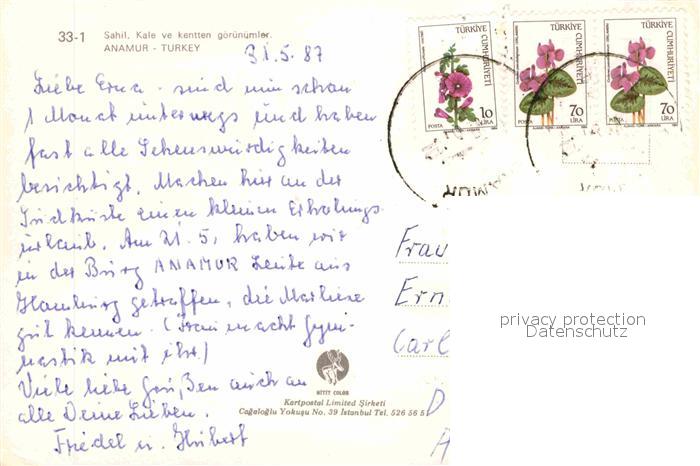 33-1 Sahil, Kale ve kentten görünümler.
ANAMUR - TURKEY
31.5.87
Liebe Erna - sind nun schon
1 Monat unterwegs und haben
fast alle Sehenswürdigkeiten
besichtigt. Machen hier an der
Südküste einen kleinen Erholungs-
urlaub. Am 21.5. haben wir
in der Burg ANAMUR Leute aus
Hamburg getroffen, die Marliese
gut kennen. (Frau macht Gym-
nastik mit ihr.)
Viele liebe Grüße auch an
alle Deine Lieben.
Friedel u. Hubert
TÜRKİYE CUMHURİYETİ
POSTA 10 LİRA
TÜRKİYE CUMHURİYETİ
POSTA 70 LİRA
TÜRKİYE CUMHURİYETİ
POSTA 70 LİRA
Frau
Ern
Carl
D
privacy protection
Datenschutz
HITIT COLOR
Kartpostal Limited Şirketi
Cağaloğlu Yokuşu No. 39 İstanbul Tel. 526 56 5